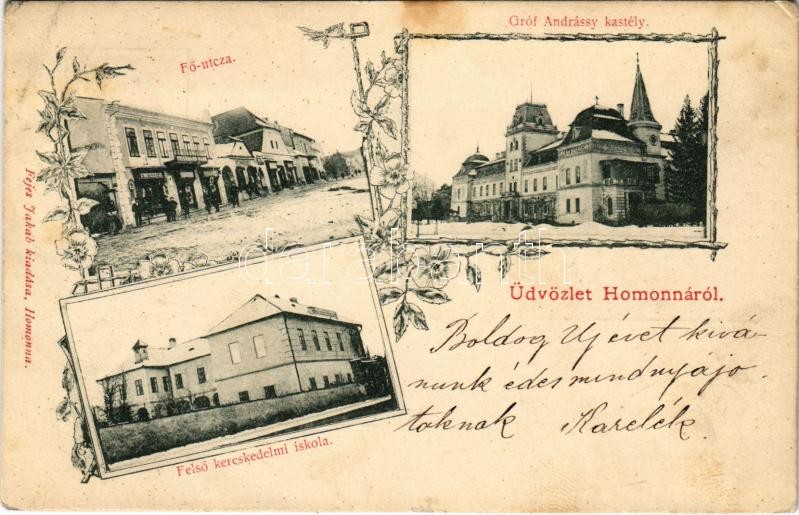 Gróf Andrássy kastély.
Fő-utcza.
Fejes Jakab kiadása, Homonna.
darabanth
Üdvözlet Homonnáról.
Boldog Ujévet kivá-
nunk édes mindnyájo.
toknak Karelék.
Felső kereskedelmi iskola.